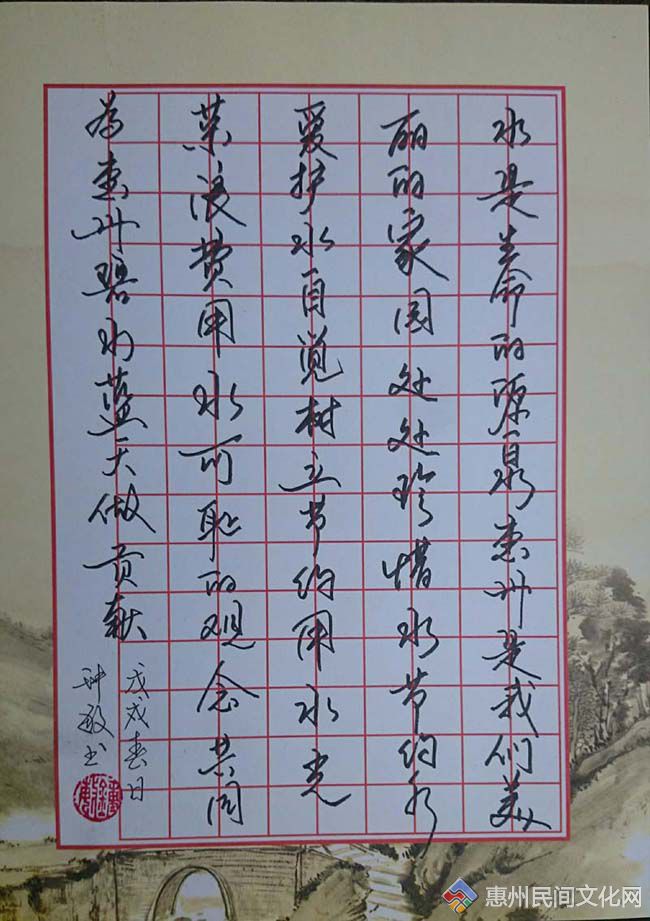 水是生命的源泉惠州是我们美
丽的家园处处珍惜水节约水
爱护水自觉树立节约用水光
荣浪费用水可耻的观念共同
为惠州碧水蓝天做贡献
戊戌春日
钟敏书
惠州民间文化网